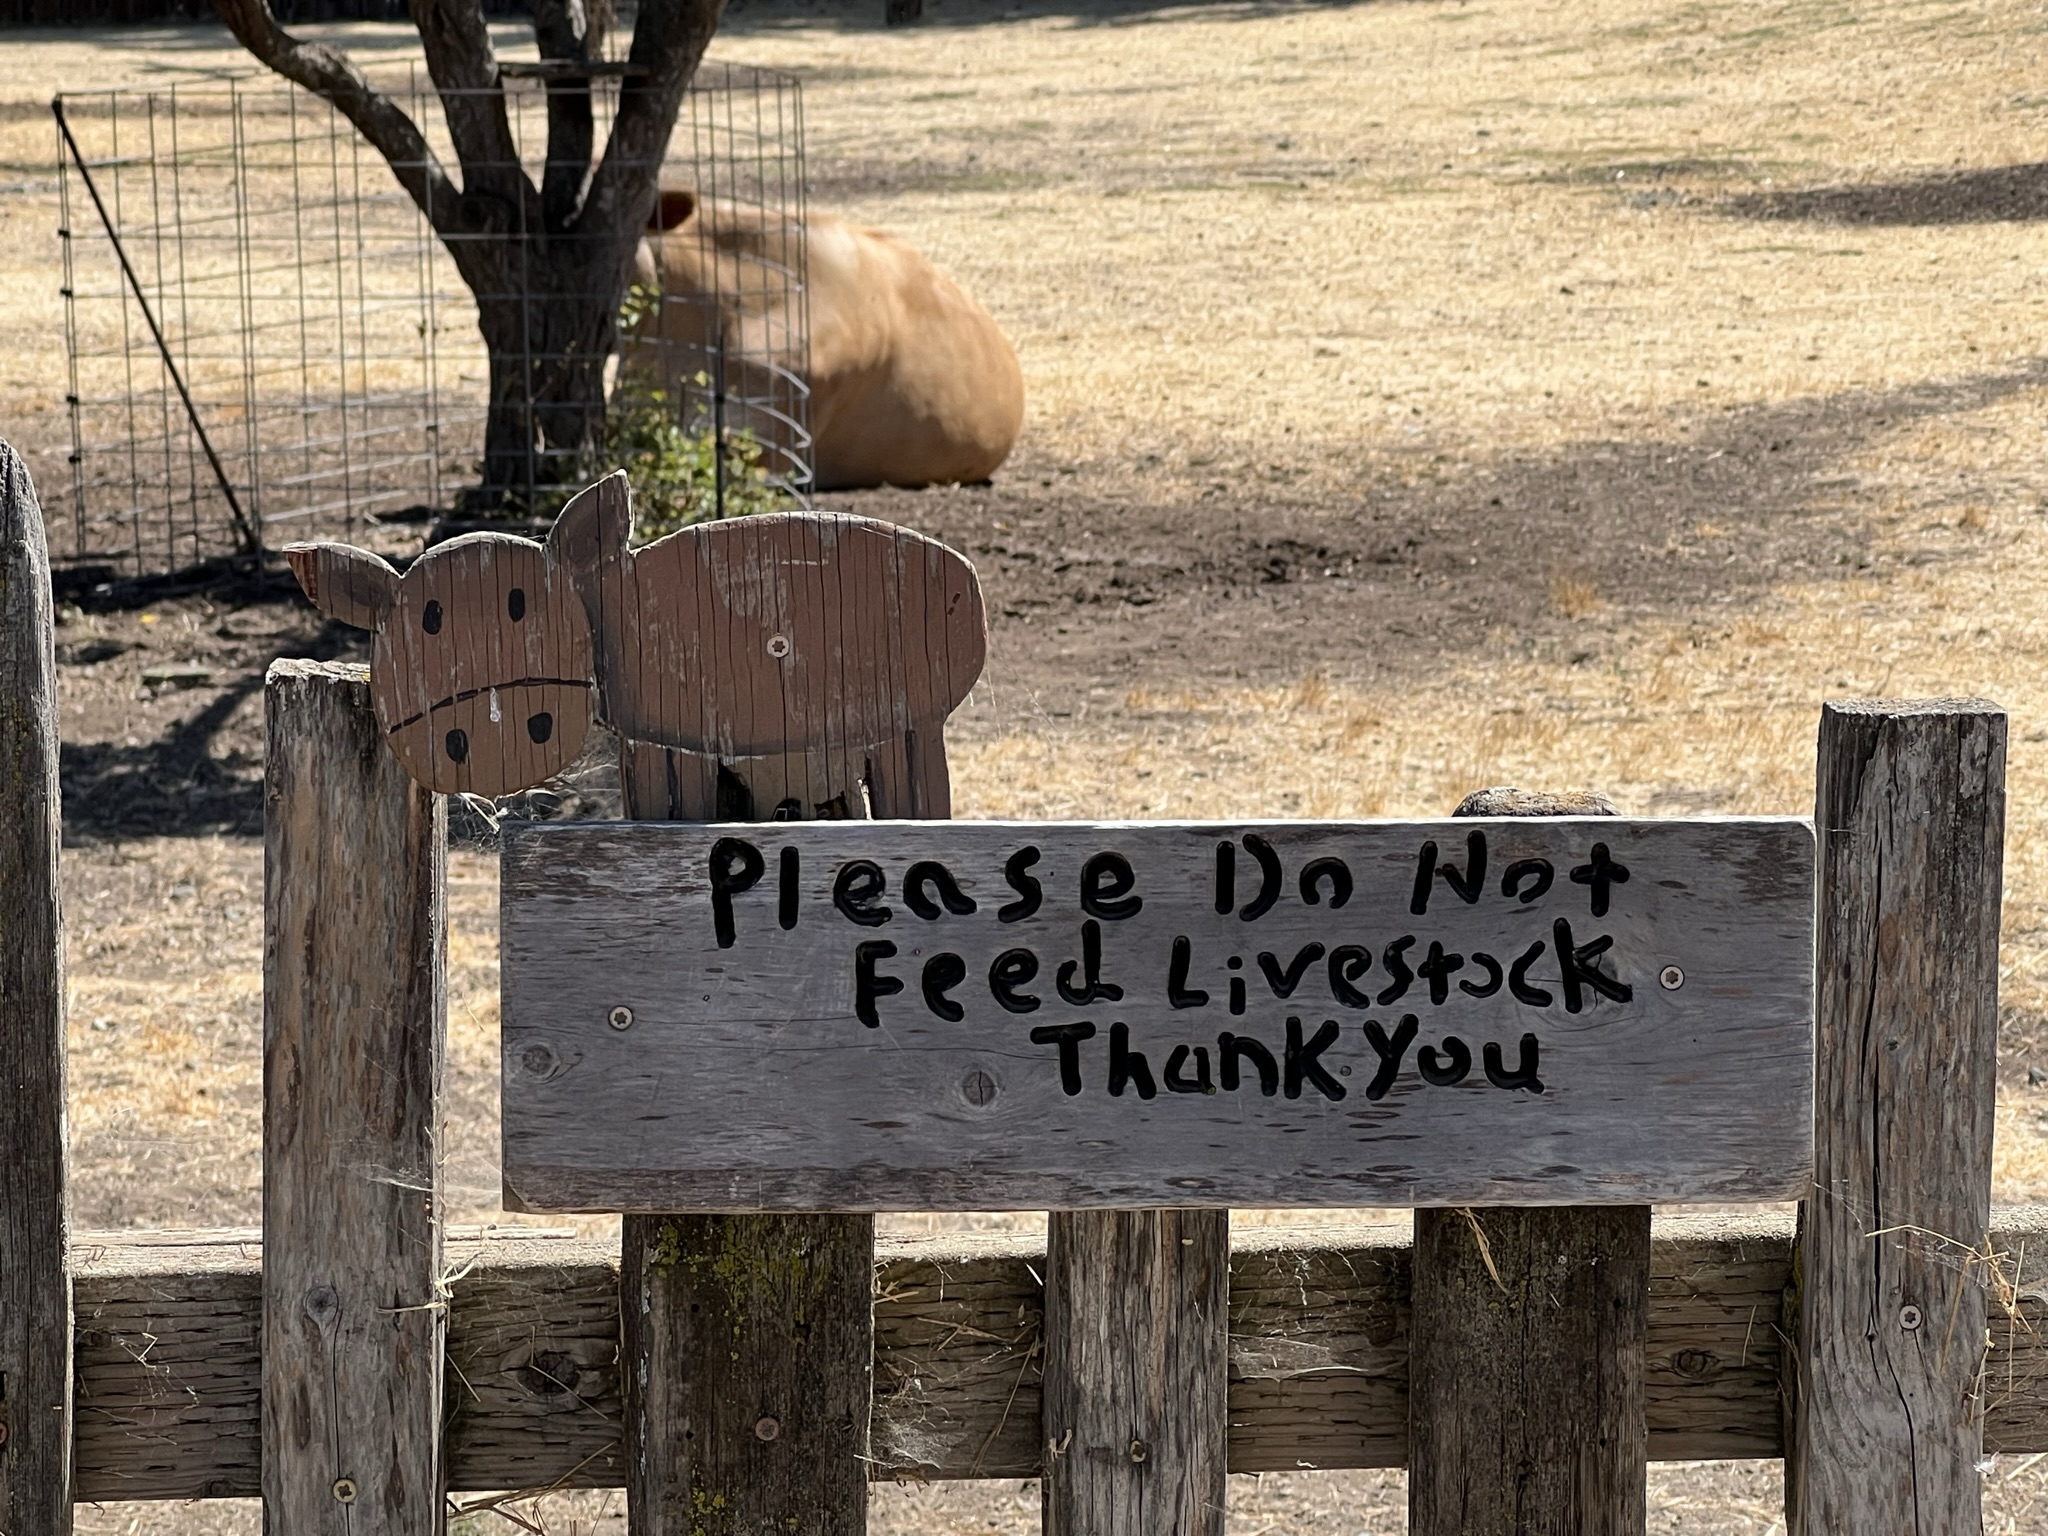 Please Do Not
Feed Livestock
Thank You